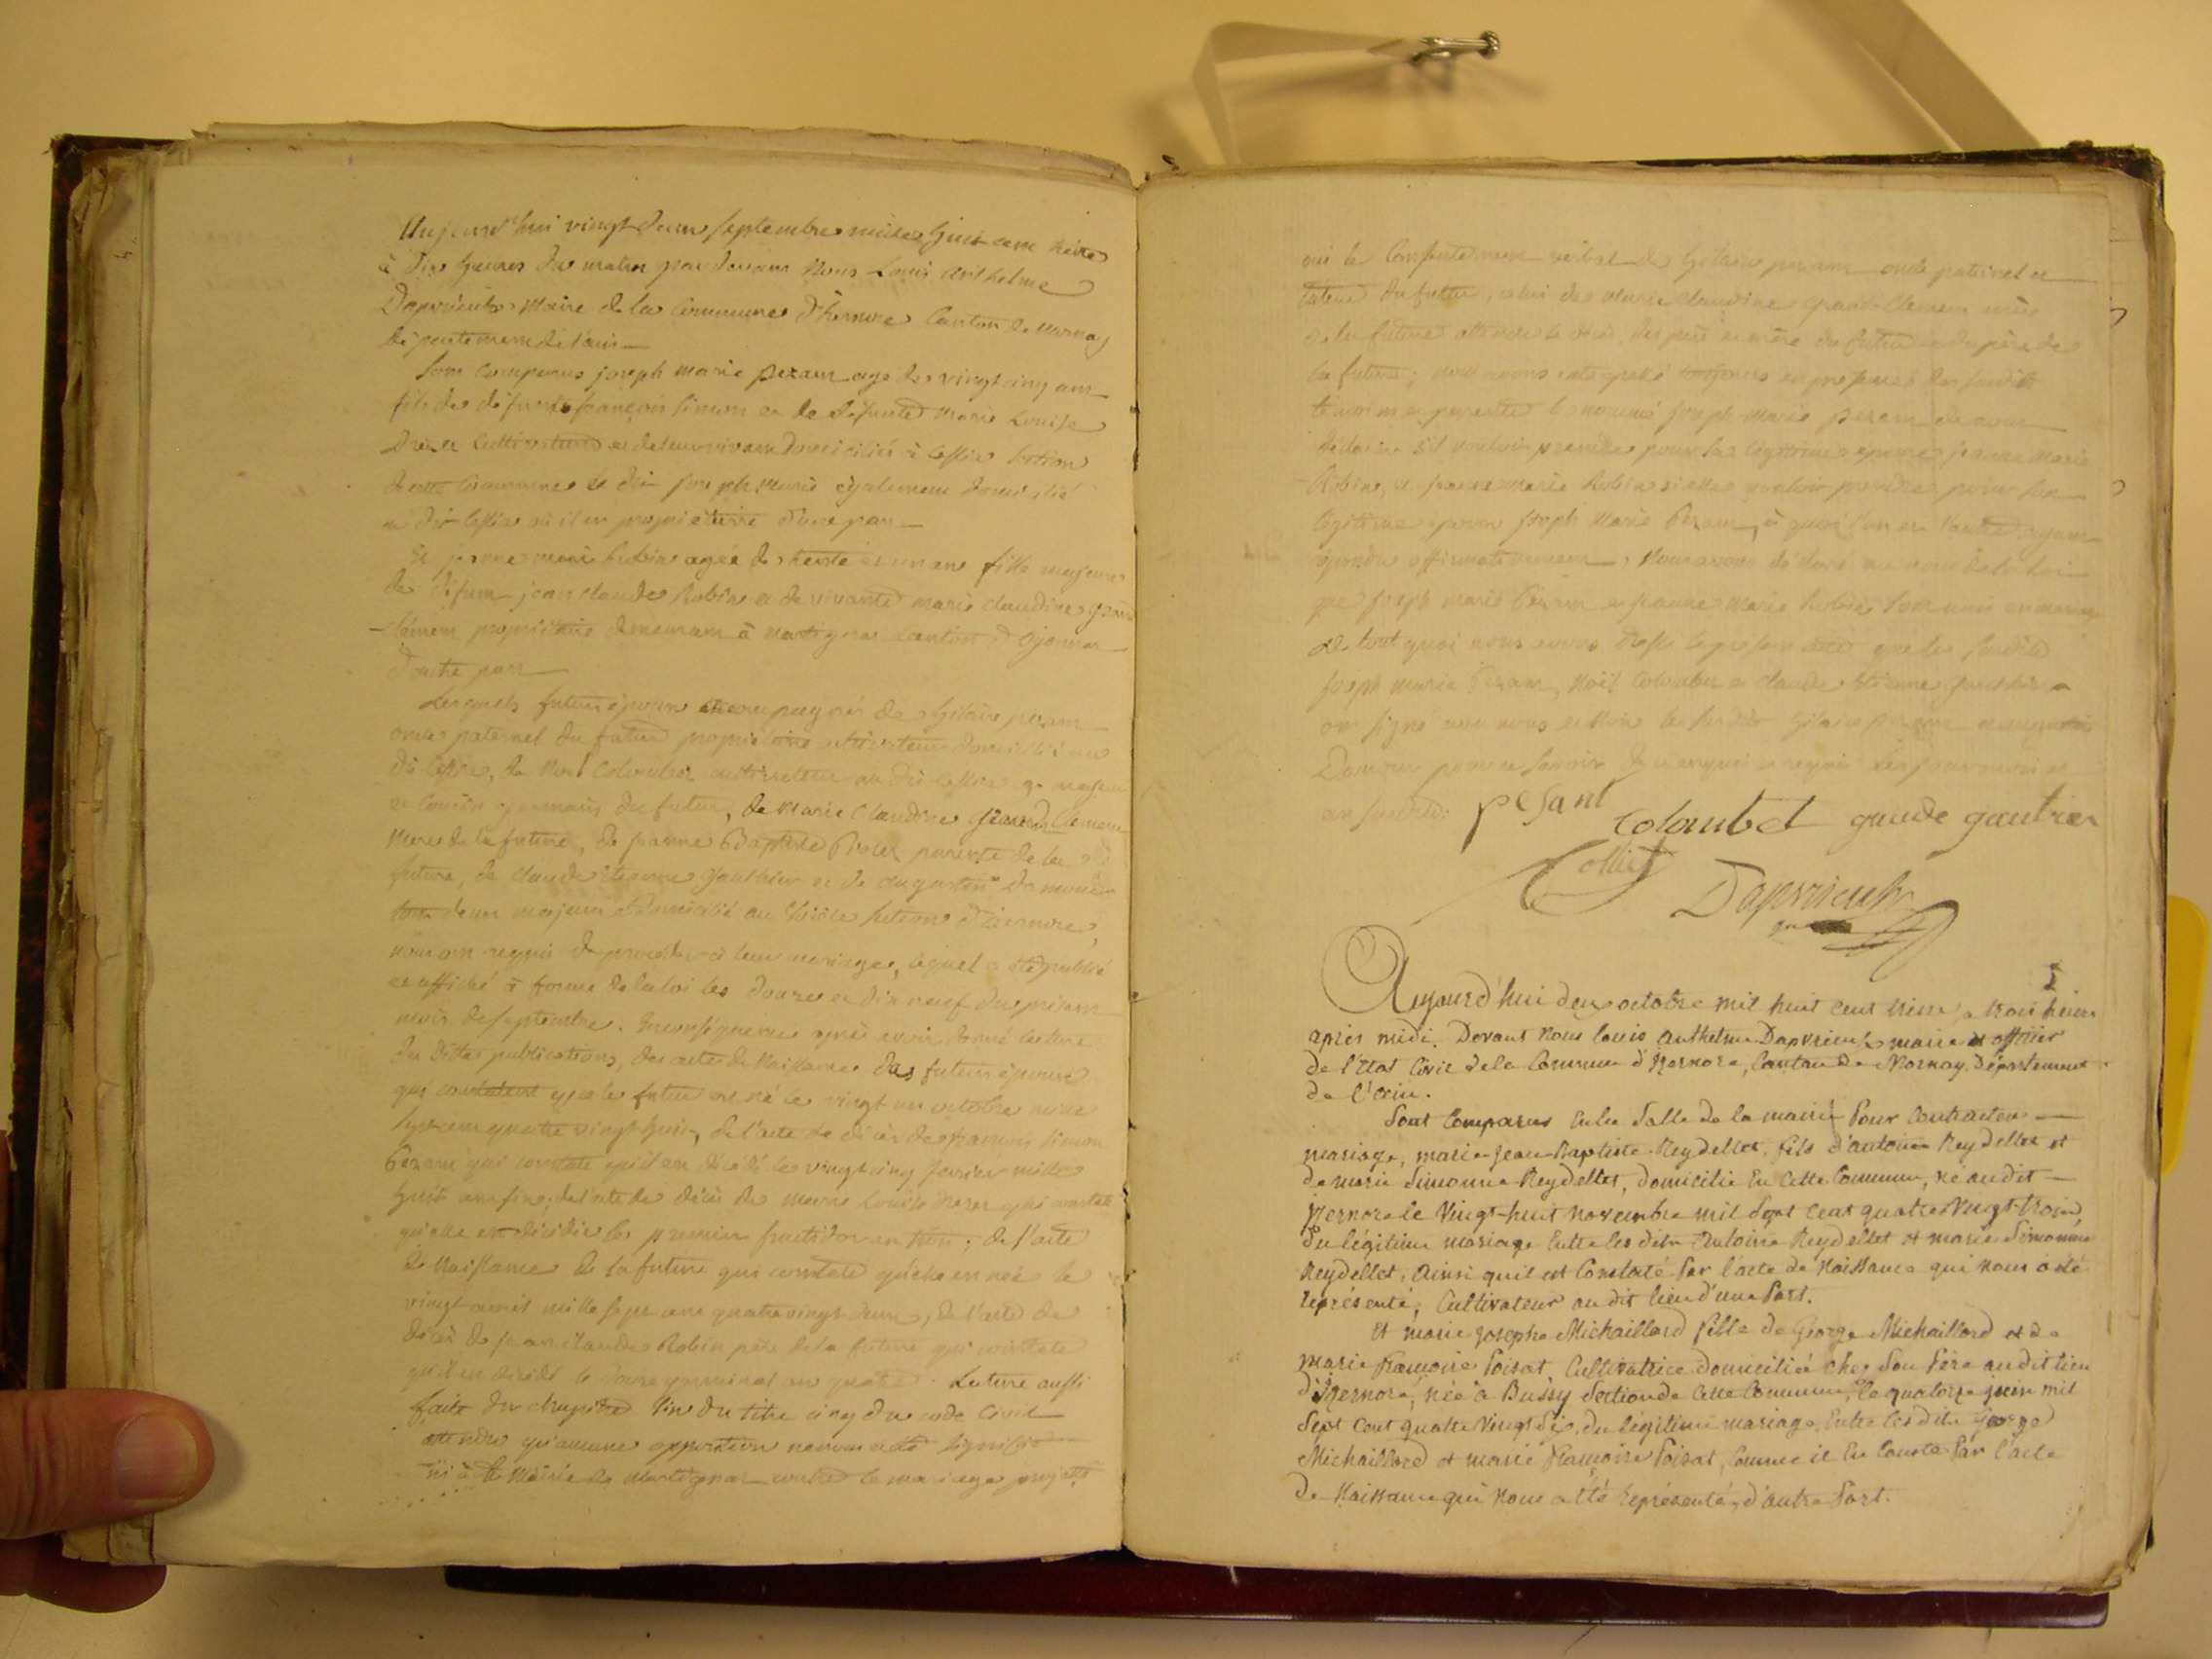 Aujourd'hui vingt deux septembre mille huit cent treize
à dix heures du matin pardevant Nous Louis Anthelme
Dapvrieulx Maire de la Commune d'hernore Canton de Nornay
département de l'ain
Sont Comparus joseph marie pezant agé de vingt cinq ans
fils de défunts françois Simon et de défunte Marie Louise
cultivateurs et de leur vivant domiciliés à section
de cette Commune le dit joseph Marie également domicilié
au dit où il est propriétaire d'une part
Et jeanne marie Robin agée de trente et un ans fille majeure
de défunt jean claude Robin et de vivante marie claudine grand
clément propriétaire demeurant à martignat canton d'oyonnax
d'autre part
Lesquels futurs époux accompagnés de hilaire pezant
oncle paternel du futur propriétaire cultivateur domicilié au
dit de Noël Colombet cultivateur au dit majeur
et Cousin germain du futur, de Marie Claudine grand Clement
Mere de la future, de jeanne Baptiste parente de la
future, de claude étienne gauthier et de augustin
deux majeurs et domicilié au section d'izernore,
nous ont requis de procéder à leur mariage, lequel a été publié
et affiché à forme de la loi les douze et dix neuf du présent
mois de septembre. En conséquence après avoir donné lecture
des dittes publications, des actes de Naissance des futurs époux
qui constatent que le futur est né le vingt un octobre mille
sept cent quatre vingt huit, de l'acte de décès de françois simon
Pezant qui constate qu'il est décédé le vingt cinq fevrier mille
huit cent six, de l'acte de décès de marie Louise qui constate
qu'elle est décédée le premier fructidor an trois, de l'acte
de Naissance de la future qui constate qu'elle est née le
vingt avril mille sept cent quatre vingt deux, de l'acte de
décès de jean claude Robin père de la future qui constate
qu'il est décédé le douze germinal an quatre. Lecture aussi
faite du chapitre six du titre cinq du code Civil
attendu qu'aucune opposition ne nous a été signifiée
ni à la Mairie de Martignat contre le mariage projetté
oui le Consentement verbal de hilaire pezant oncle paternel et
tuteur du futur, celui de Marie claudine grand-Clement mère
de la future attendu le décès des père et mère du futur et du père de
la future; nous avons interpellé en présence des susdits
témoins et parents le nommé joseph-marie pezant de nous
déclarer s'il vouloit prendre pour sa légitime épouse jeanne Marie
Robin, et jeanne Marie Robin si elle vouloit prendre pour son
légitime époux joseph Marie Pezant, à quoi l'un et l'autre ayant
répondu affirmativement, Nous avons déclaré au nom de la loi
que joseph marie Pezant et jeanne Marie Robin sont unis en mariage
de tout quoi nous avons dressé le présent acte que les susdits
joseph marie Pezant, Noël Colombet et claude étienne gauthier
ont signé avec nous et non le susdit hilaire pezant
pour ne savoir de ce enquis et requis Les jour mois et
an susdits.
peSant
Colombet gaude gautier
Collet
Dapvrieulx
2
Aujourd'hui deux octobre mil huit cent treize, a trois heures
après midi. Devant Nous louis Anthelme Dapvrieulx maire et officier
de l'Etat Civil de la Commune d'Izernore, Canton de Nornay, département
de l'Ain.
Sont Comparus En la Salle de la mairie Pour Contracter
mariage, marie Jean-Baptiste Reydellet, fils d'antoine Reydellet et
de marie Simonne Reydellet, domicilié En Cette Commune, né audit
Izernore le Vingt-huit Novembre mil Sept Cent quatre Vingt-trois,
du légitime mariage Entre les dits Antoine Reydellet et marie Simonne
Reydellet, Ainsi qu'il est Constaté Par l'acte de Naissance qui Nous a été
représenté, Cultivateur au dit lieu d'une Part.
Et marie Josephe Michaillard fille de George Michaillard et de
Marie Françoise Poisat, Cultivatrice domiciliée chez Son Père audit lieu
d'Izernore, née à Bussy Section de Cette Commune, le quatorze juin mil
Sept Cent quatre Vingt Six, du légitime mariage Entre les dits George
Michaillard et marie Françoise Poisat, Comme il En Conste Par l'acte
de Naissance qui Nous a été représenté, d'autre Part.